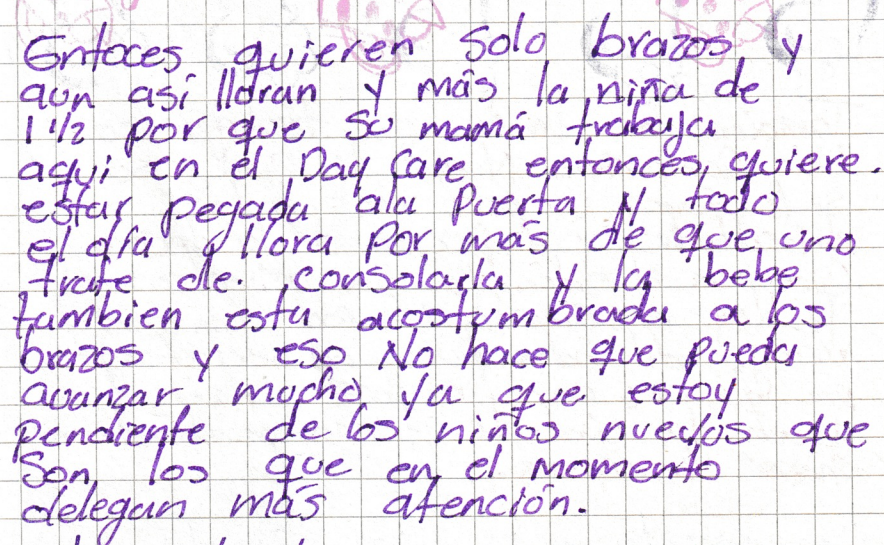 Entoces quieren solo brazos y
aun asi lloran y más la niña de
1 1/2 por que su mamá trabaja
aqui en el Day Care entonces, quiere.
estar pegada ala Puerta y todo
el dia llora por más de que uno
trate de. consolarla y la bebe
tambien esta acostumbrada a los
brazos y eso No hace que pueda
avanzar mucho ya que estoy
pendiente de los niños nuevos que
Son los que en el momento
delegan más atención.